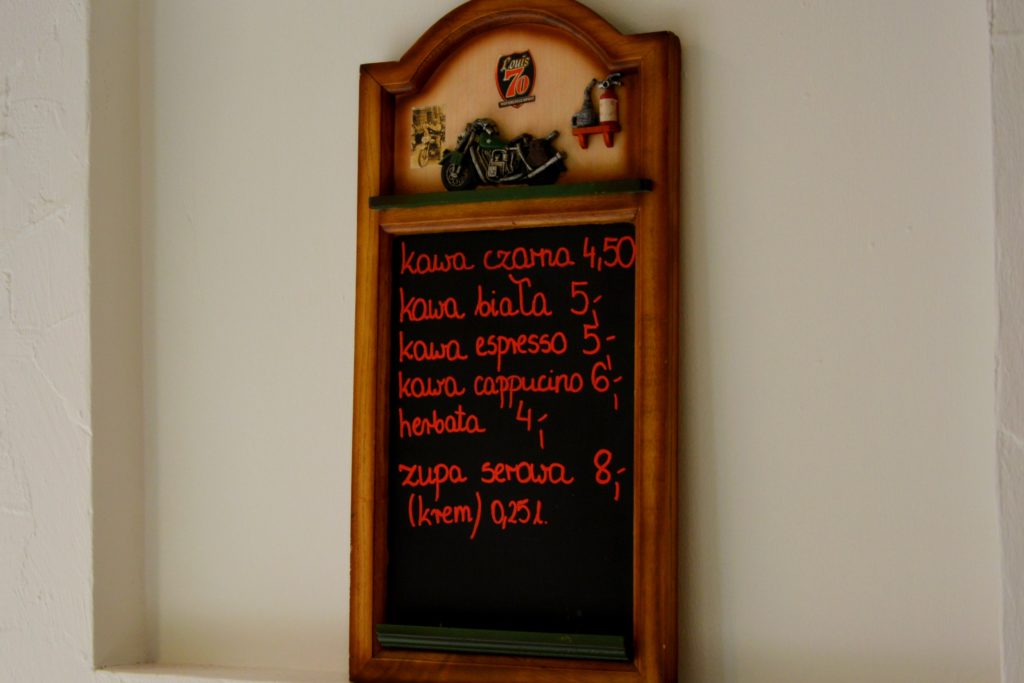 Louis
70
kawa czarna 4,50
kawa biała 5,-
kawa espresso 5,-
kawa cappucino 6,-
herbata 4,-
zupa serowa 8,-
(krem) 0,25 l.